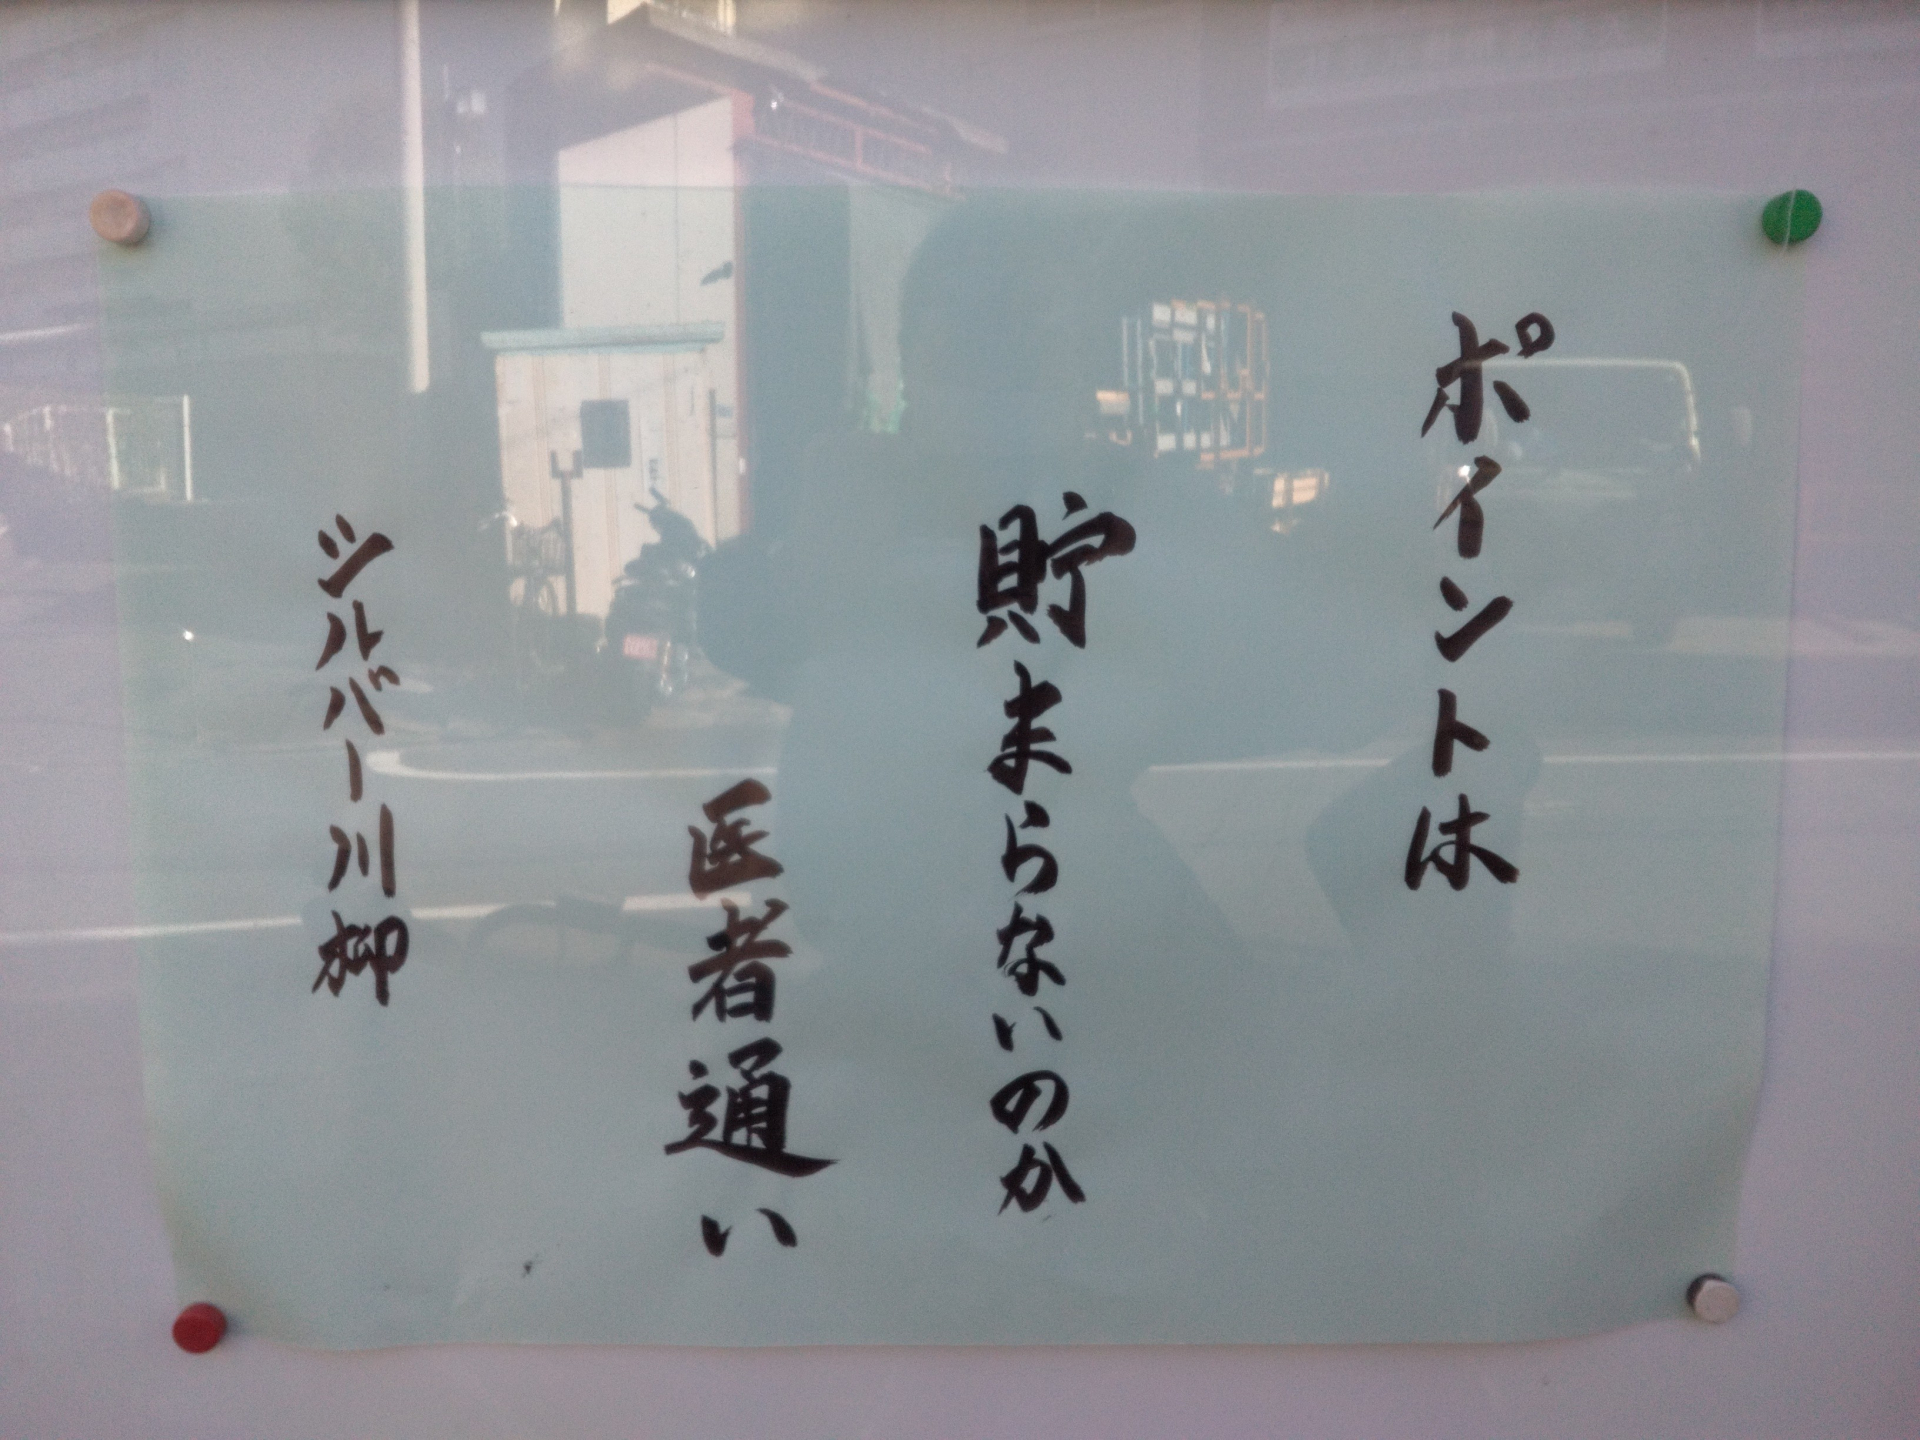 ポイントは
貯まらないのか
医者通い
シルバー川柳